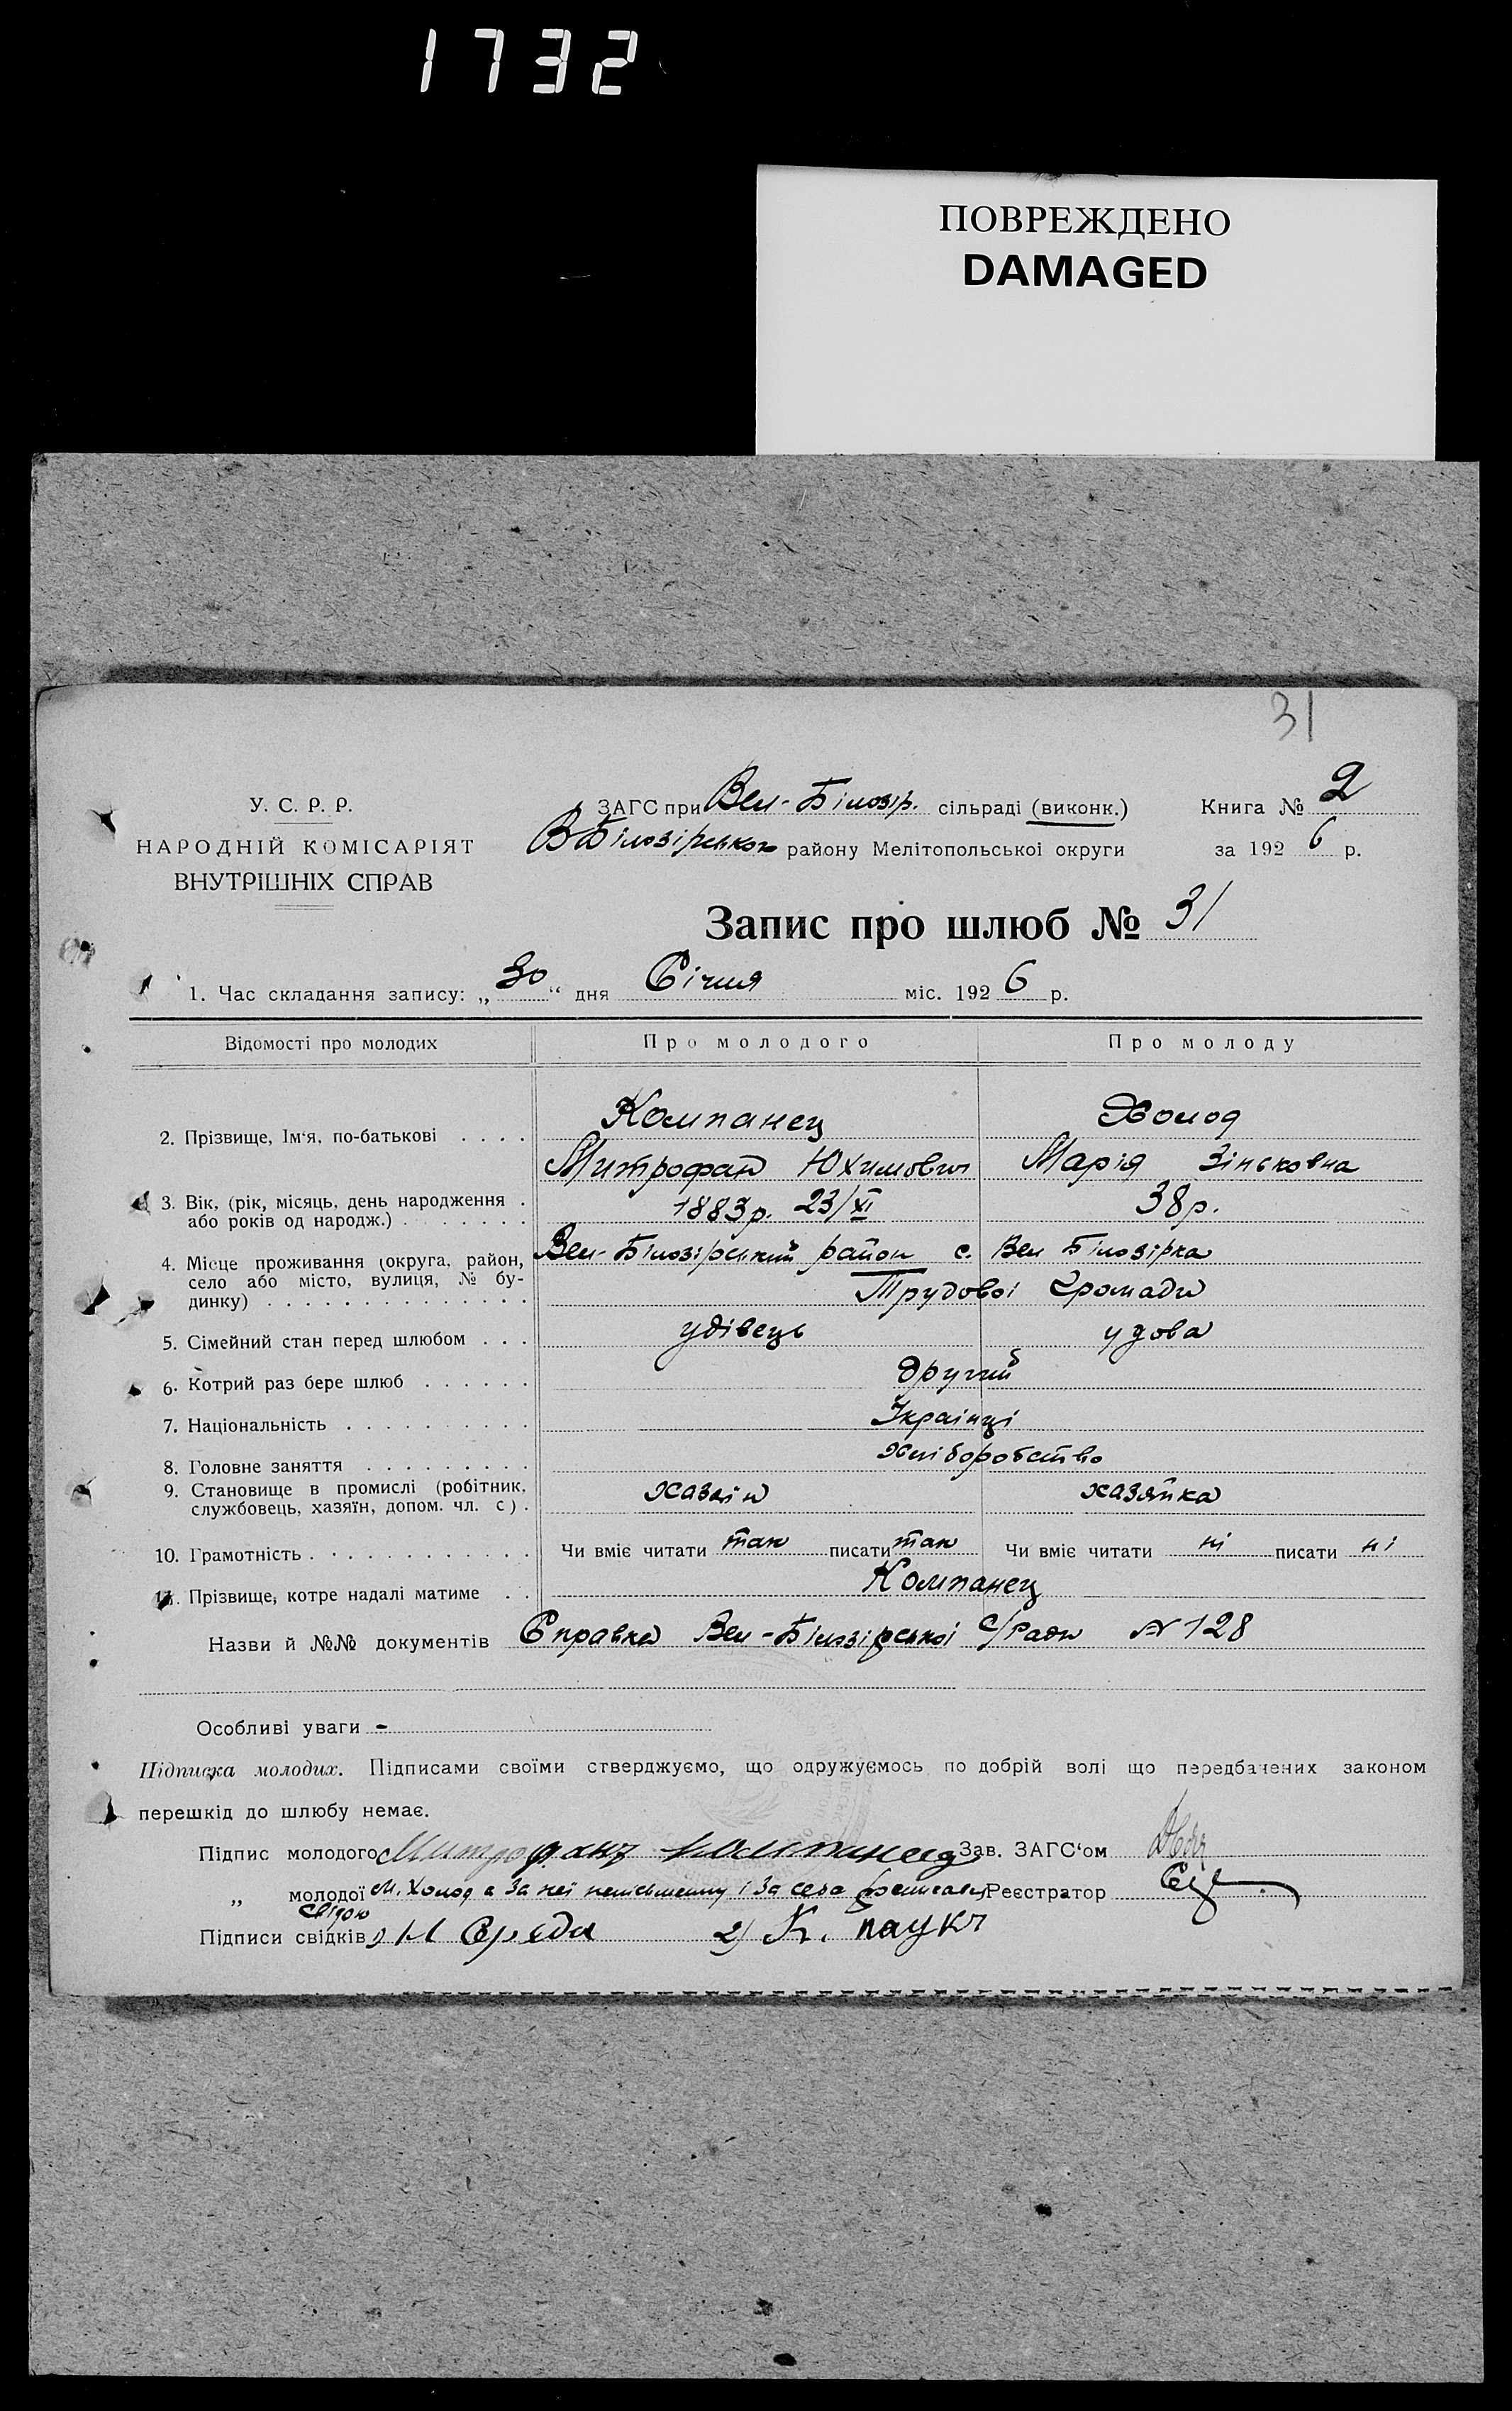 1732
ПОВРЕЖДЕНО
DAMAGED
31
У. С. Р. Р.
НАРОДНІЙ КОМІСАРІЯТ
ВНУТРІШНІХ СПРАВ
ЗАГС при Вел-Білозір. сільраді (виконк.)
В Білозірського району Мелітопольської округи
Книга № 2
за 1926 р.
Запис про шлюб № 31
1. Час складання запису: „30“ дня Січня міс. 1926 р.
Відомості про молодих Про молодого Про молоду
2. Прізвище, Ім'я, по-батькові . . . . Компанец Холод
Митрофан Юхимович Марія Зіньковна
3. Вік, (рік, місяць, день народження .
або років од народж.) . . . . . . . 1883р. 23/XI 38р.
4. Місце проживання (округа, район,
село або місто, вулиця, № бу-
динку) . . . . . . . . . . . . . .
Вел-Білозірський район с. Вел Білозірка
Трудової Громади
5. Сімейний стан перед шлюбом . . . удівець удова
6. Котрий раз бере шлюб . . . . . . другий
7. Національність . . . . . . . . . . Українці
8. Головне заняття . . . . . . . . . хліборобство
9. Становище в промислі (робітник,
службовець, хазяїн, допом. чл. с) . хазяін хазяйка
10. Грамотність . . . . . . . . . . . . Чи вміє читати так писати так Чи вміє читати ні писати ні
11. Прізвище, котре надалі матиме . . Компанец
Назви й №№ документів Справка Вел-Білозірської С/Ради № 128
Особливі уваги -
Підписка молодих. Підписами своїми стверджуємо, що одружуємось по добрій волі що передбачених законом
перешкід до шлюбу немає.
Підпис молодого Митрофанъ Компанец Зав. ЗАГС'ом
„ молодої М. Холод а За неї неписьменну і За себе росписавсь Реєстратор
свідок
Підписи свідків 1) М Середа 2) К. паукъ